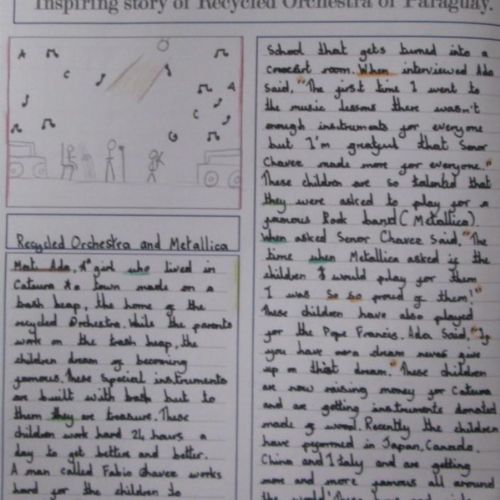 Inspiring story of Recycled Orchestra of Paraguay.
A
C
A
C
G
C
Recycled Orchestra and Metallica
Meti Ada, A girl who lived in
Cateura a town made on a
trash heap, the home of the
recycled Orchestra. While the parents
work on the trash heap, the
children dream of becoming
famous. These special instruments
are built with trash but to
them they are treasure. These
children work hard 24 hours a
day to get better and better.
A man called Fabio Chavee works
hard for the children to
School that gets turned into a
concert room. When interviewed Ada
said, "The first time I went to
the music lessons there wasn't
enough instruments for everyone
but I'm grateful that Senor
Chavee made more for everyone."
These children are so talented that
they were asked to play for a
famous Rock band (Metallica).
When asked Senor Chavee Said, "The
time when Metallica asked if the
children I would play for them
I was so so proud of them!"
These children have also played
for the Pope Francis. Ada Said, "If
you have a dream never give
up on that dream." These children
are now raising money for Cateura
and are getting instruments donated
made of wood. Recently the children
have peformed in Japan, Canada,
China and Italy and are getting
more and more famous all around
the world